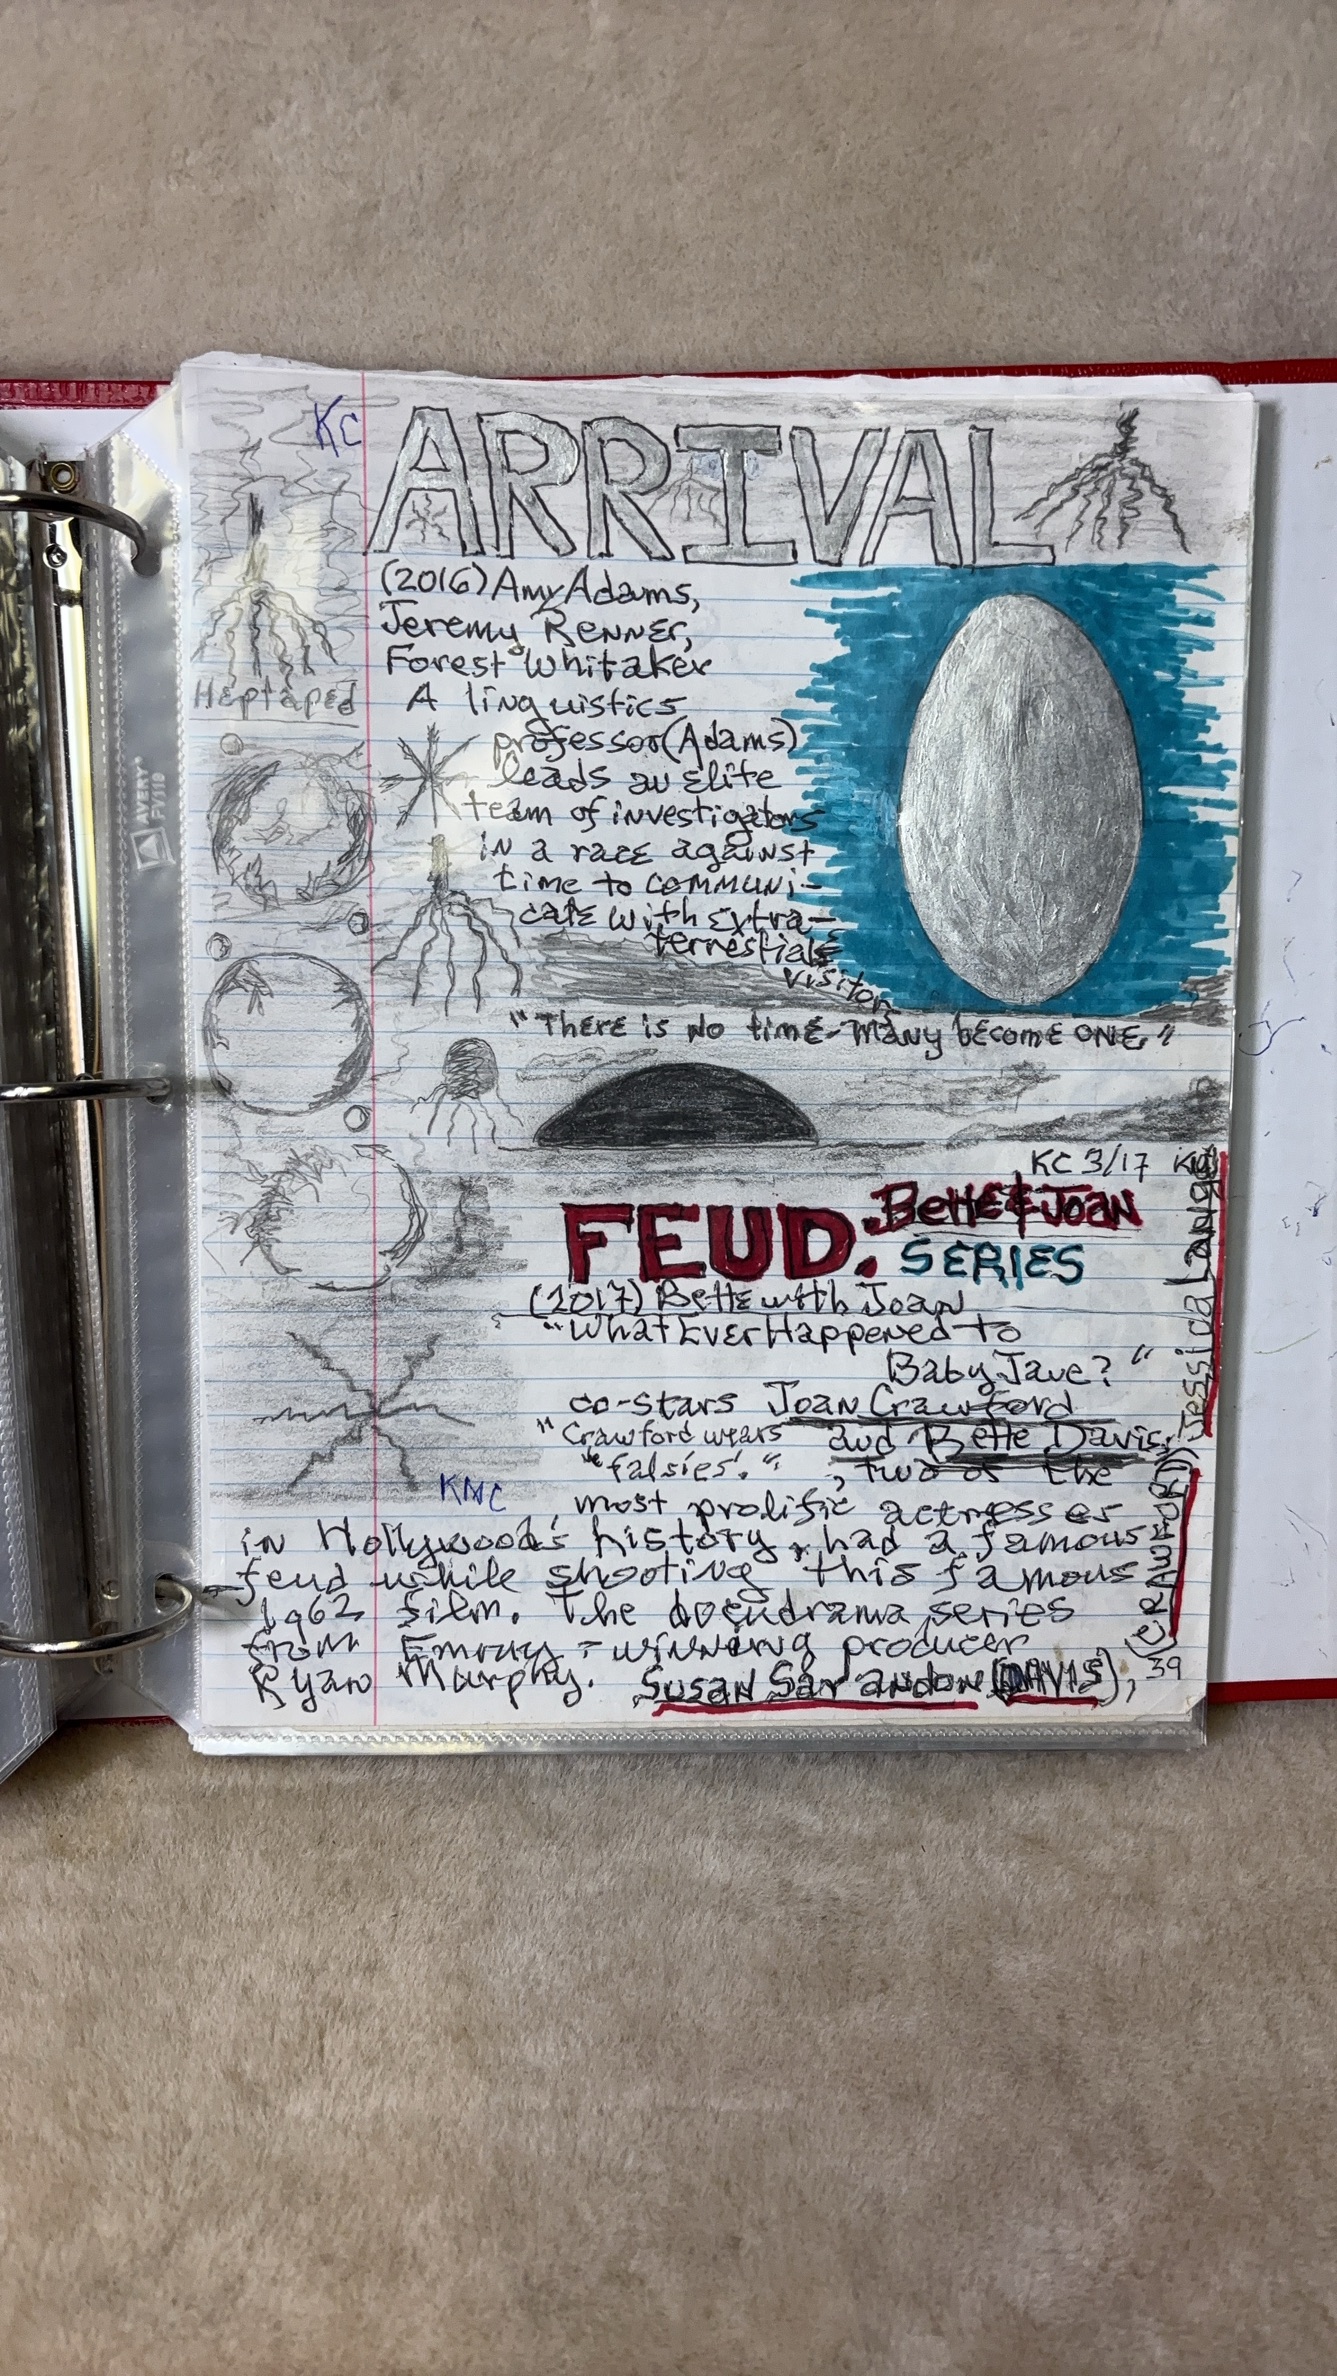 KC
ARRIVAL
(2016) Amy Adams,
Jeremy Renner,
Forest Whitaker
Heptaped
A linguistics
professor (Adams)
leads an elite
team of investigators
in a race against
time to communi-
cate with extra-
terrestials
visitor
"There is no time. Many become ONE."
AVERY®
PV119
KC 3/17
FEUD: Bette & Joan
SERIES
(2017) Bette with Joan
"What Ever Happened to
Baby Jane?"
co-stars Joan Crawford
"Crawford wears
and Bette Davis
"falsies"."
, two of the
KNC
most prolific actresses
in Hollywood's history, had a famous
feud while shooting this famous
1962 film. The docudrama series
from Emmy-winning producer
Ryan Murphy. Susan Sarandon (DAVIS),
Jessica Lange
(CRAWFORD)
39